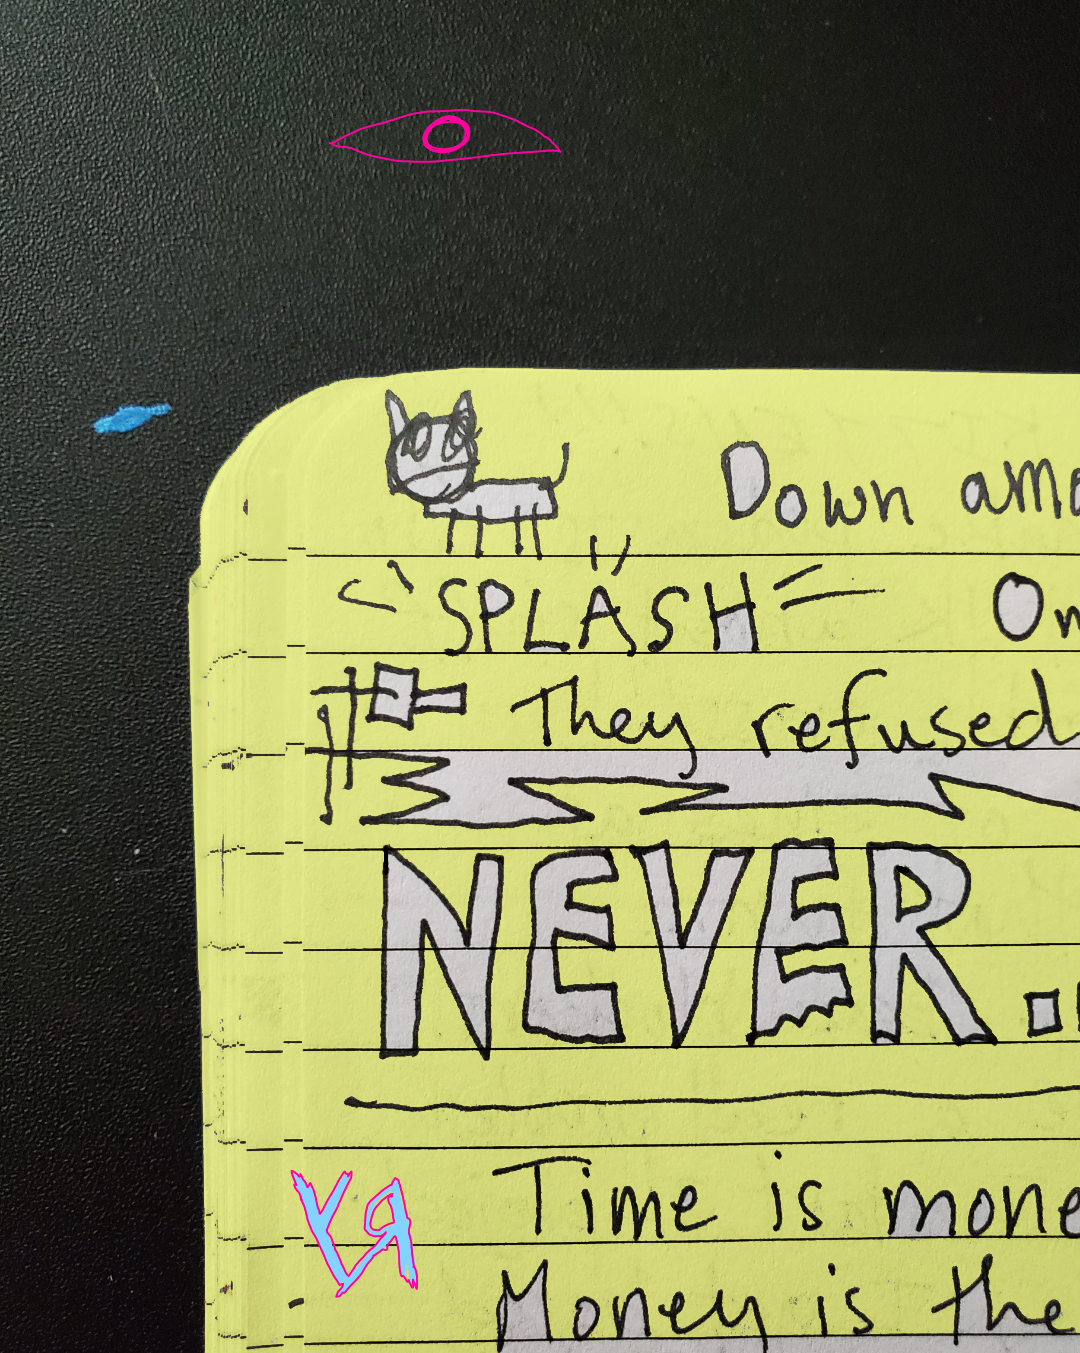 Down amo
SPLASH On
They refused
NEVER..
Time is mone
Money is the